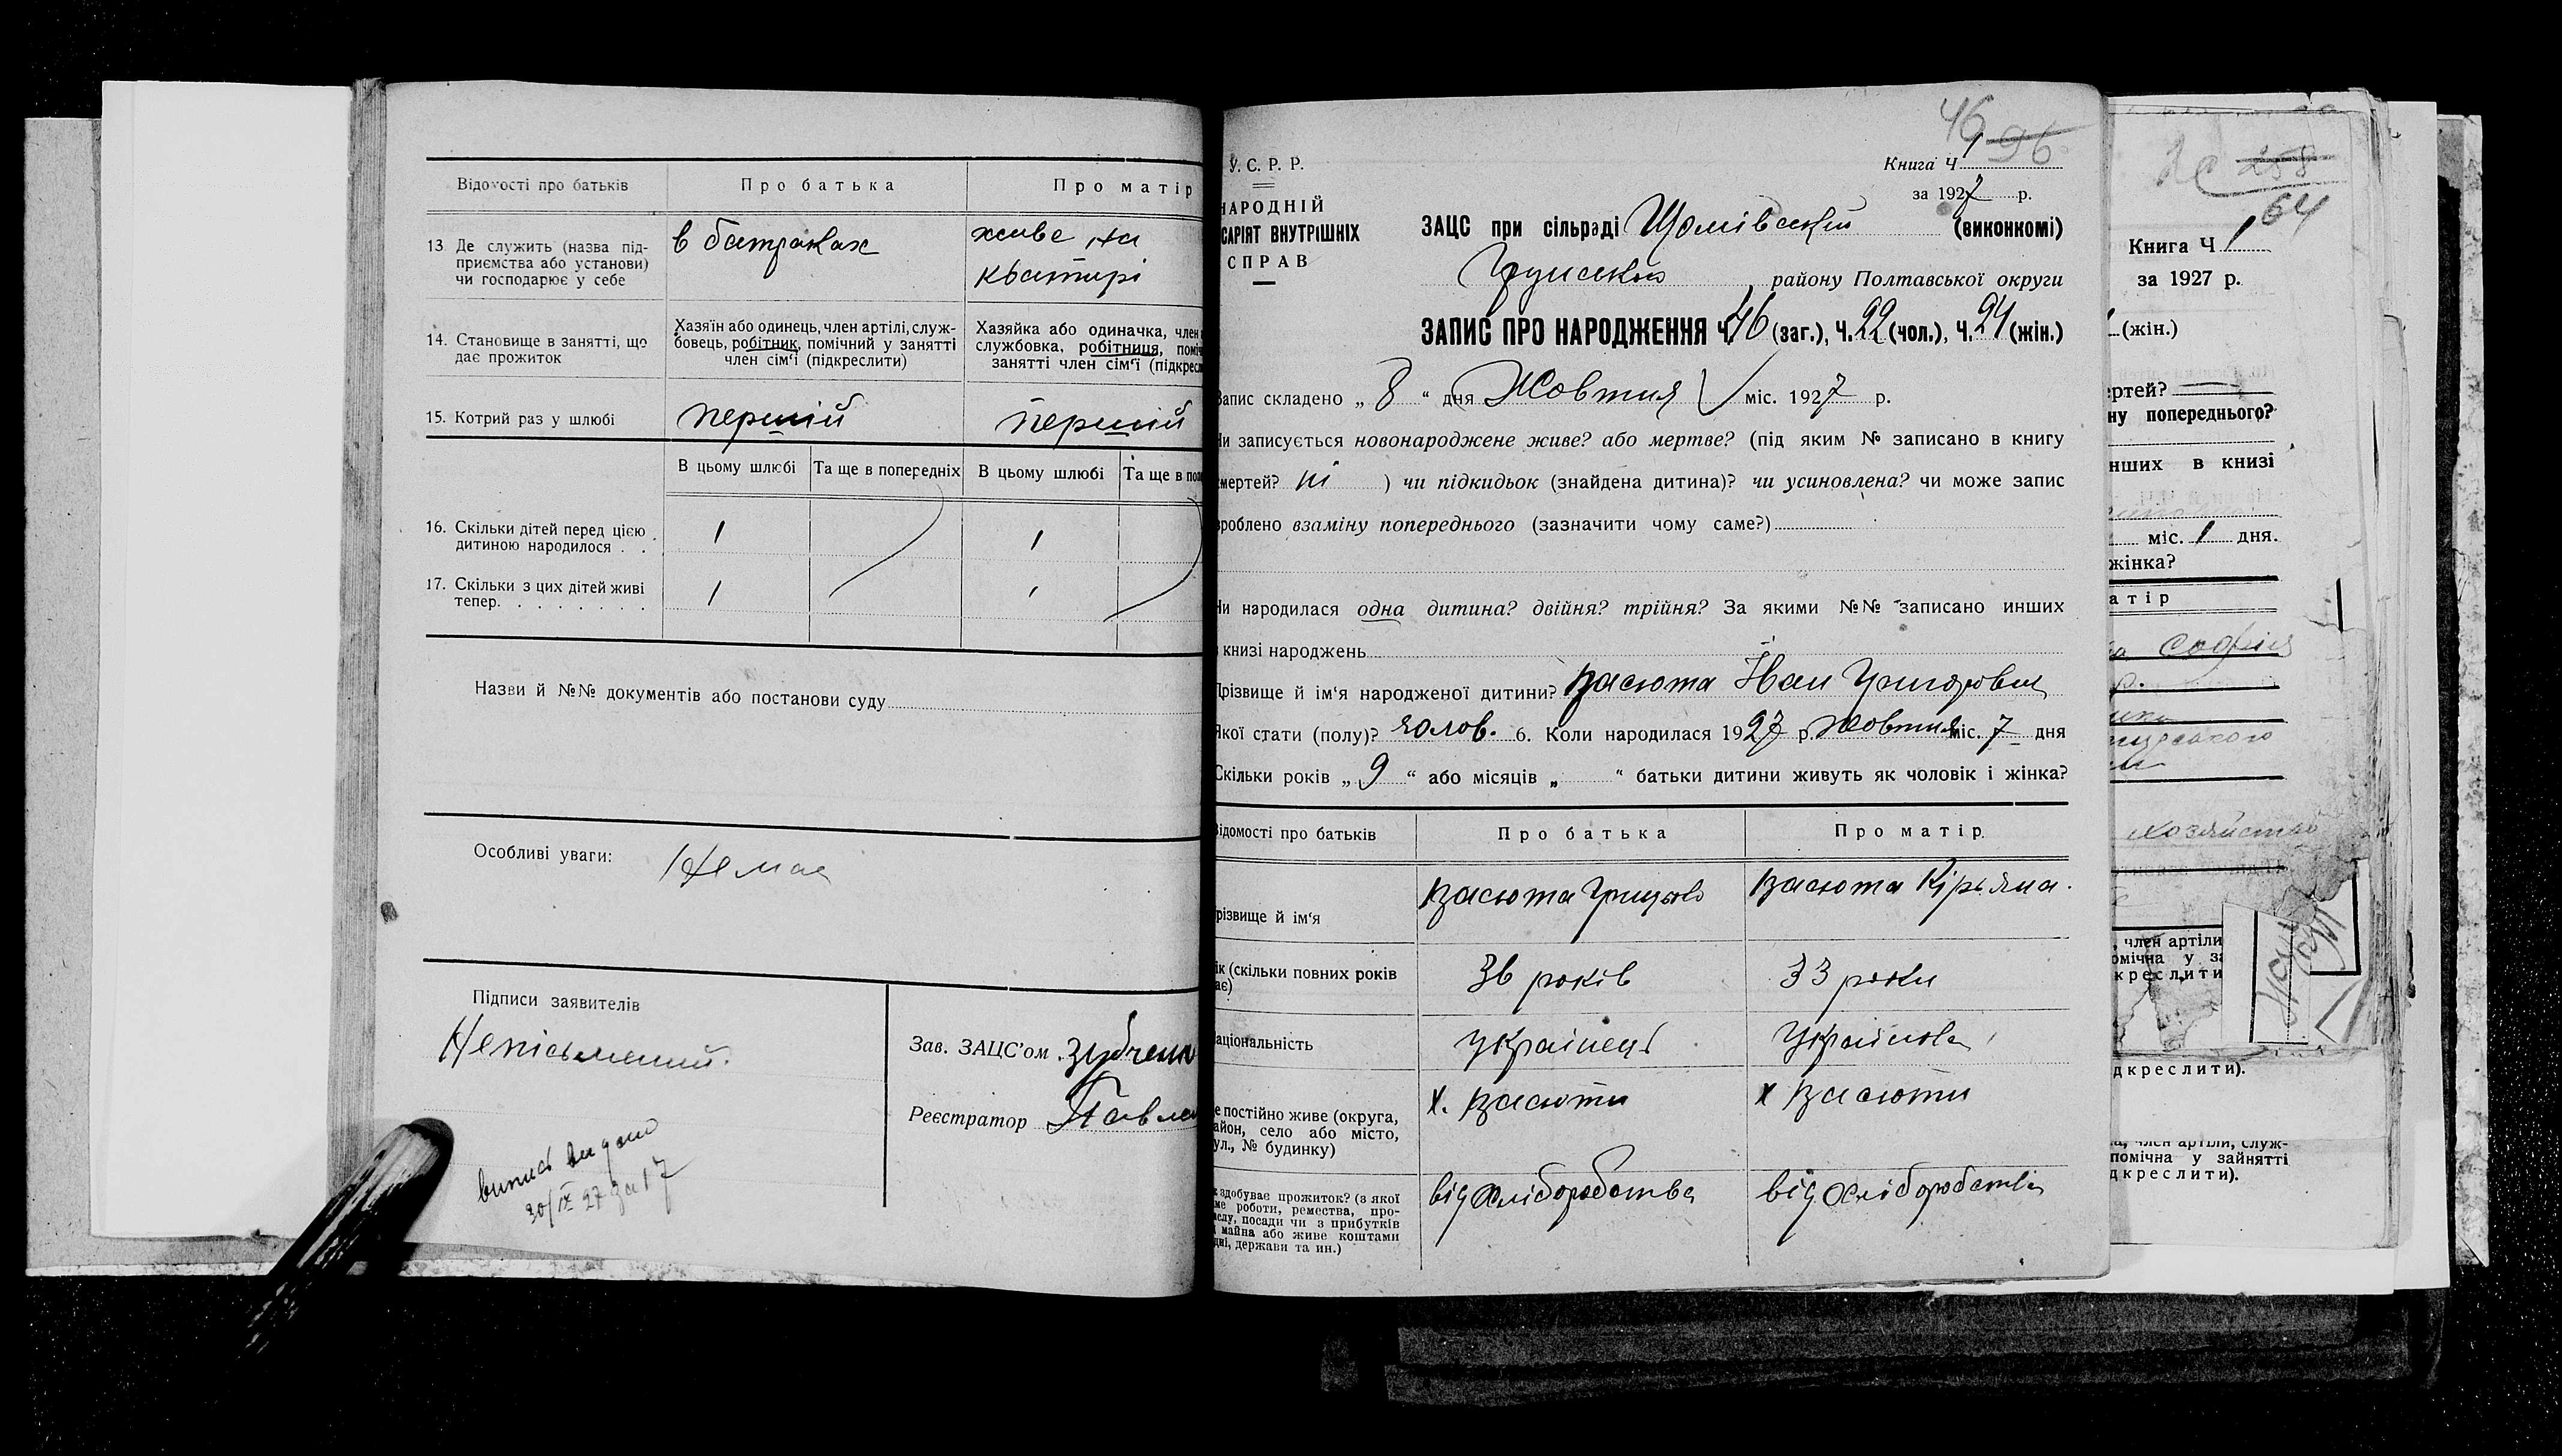 Відомості про батьків
Про батька
Про матір
13. Де служить (назва під-
приємства або установи)
чи господарює у себе
в батраках
живе на
квартирі
14. Становище в занятті, що
дає прожиток
Хазяїн або одинець, член артілі, служ-
бовець, робітник, помічний у занятті
член сім'ї (підкреслити)
Хазяйка або одиначка, член
службовка, робітниця,
занятті член сім'ї
15. Котрий раз у шлюбі
перший
перший
В цьому шлюбі
Та ще в попередніх
В цьому шлюбі
Та ще в
16. Скільки дітей перед цією
дитиною народилося . .
1
1
17. Скільки з цих дітей живі
тепер. . . . . . . .
1
1
Назви й №№ документів або постанови суду
Особливі уваги:
Немає
Підписи заявителів
Неписьменний.
Зав. ЗАЦС'ом
Реєстратор
випись видано
30/IX 27
46
96
У. С. Р. Р.
НАРОДНІЙ
ВНУТРІШНІХ
СПРАВ
Книга Ч 1
за 1927 р.
ЗАЦС при сільраді (виконкомі)
району Полтавської округи
ЗАПИС ПРО НАРОДЖЕННЯ Ч. 46 (заг.), Ч. 22 (чол.), Ч. 24 (жін.)
Запис складено „ 8 “ дня Жовтня міс. 1927 р.
Чи записується новонароджене живе? або мертве? (під яким № записано в книгу
смертей? ні ) чи підкидьок (знайдена дитина)? чи усиновлена? чи може запис
зроблено взаміну попереднього (зазначити чому саме?)
Чи народилася одна дитина? двійня? трійня? За якими №№ записано инших
книзі народжень
Прізвище й ім'я народженої дитини? Васюта Іван Григорович
Якої стати (полу)? чолов. 6. Коли народилася 1927 р. Жовтня міс. 7 дня
Скільки років „ 9 “ або місяців „ “ батьки дитини живуть як чоловік і жінка?
Відомості про батьків
Про батька
Про матір
Прізвище й ім'я
Васюта Грицько
Васюта
(скільки повних років
36 років
33 роки
Національність
українець
Українка
постійно живе (округа,
район, село або місто,
вул., № будинку)
х. Васюти
х Васюти
здобуває прожиток? (з якої
роботи, ремества, про-
посади чи з прибутків
майна або живе коштами
держави та ин.)
від хліборобства
від хліборобства
258
64
Книга Ч 1
за 1927 р.
(жін.)
попереднього?
в книзі
міс. 1 дня.
жінка?
Софія
член артіли